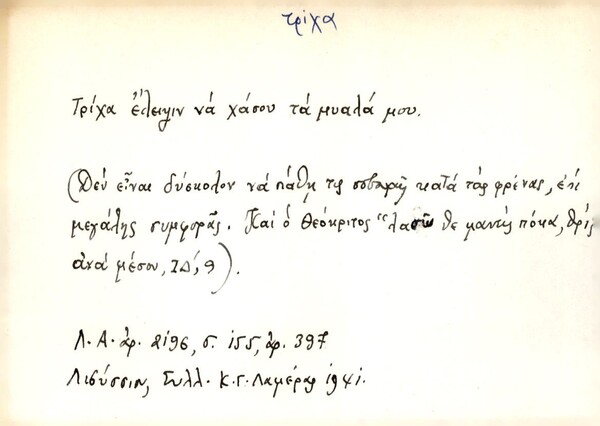 τρίχα
Τρίχα ἔλειψιν νά χάσου τά μυαλά μου.
(Δέν εἶναι δύσκολον νά πάθῃ τις σοβαρῶς κατά τάς φρένας, ἐπί
μεγάλης συμφορᾶς. Καί ὁ Θεόκριτος "λασῶ θε μανείς πόκα, θρίξ
ἀνά μέσον, ΙΔ', 9).
Λ.Α. ἀρ. 2196, σ. 155, ἀρ. 397
Λισύσσιν, Συλλ. Κ.Γ. Λαμέρας 1941.